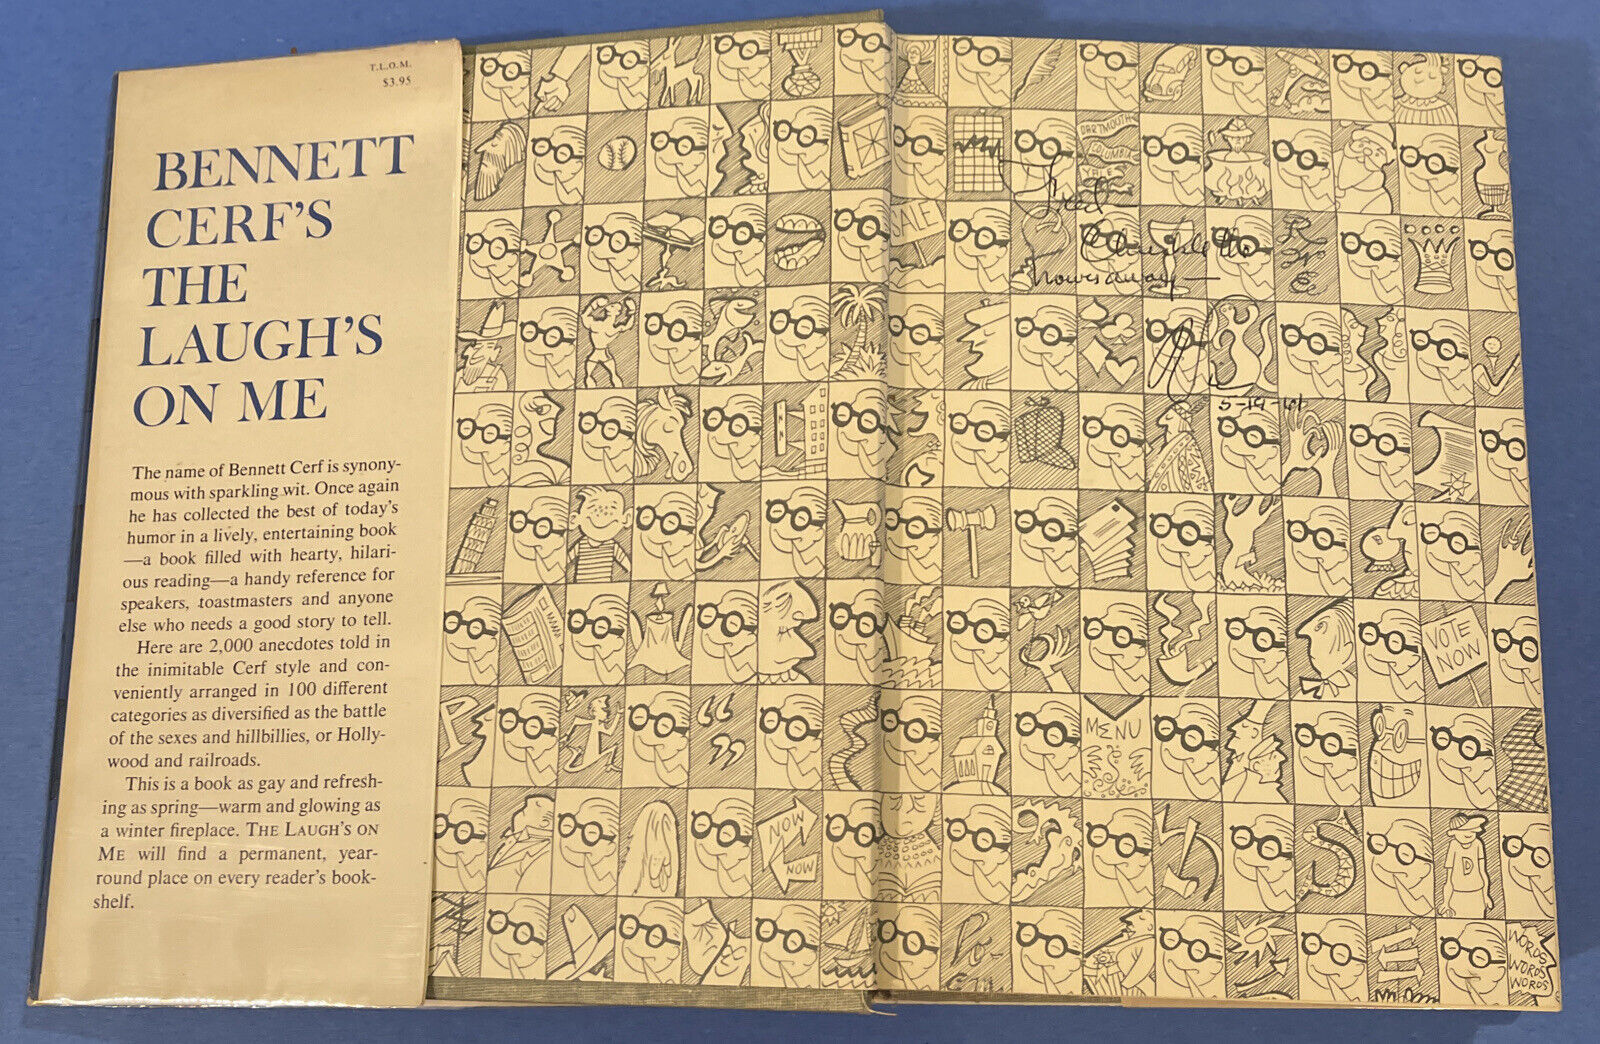 T.L.O.M.
$3.95
BENNETT
CERF'S
THE
LAUGH'S
ON ME
The name of Bennett Cerf is synony-
mous with sparkling wit. Once again
he has collected the best of today's
humor in a lively, entertaining book
—a book filled with hearty, hilari-
ous reading—a handy reference for
speakers, toastmasters and anyone
else who needs a good story to tell.
Here are 2,000 anecdotes told in
the inimitable Cerf style and con-
veniently arranged in 100 different
categories as diversified as the battle
of the sexes and hillbillies, or Holly-
wood and railroads.
This is a book as gay and refresh-
ing as spring—warm and glowing as
a winter fireplace. THE LAUGH'S ON
ME will find a permanent, year-
round place on every reader's book-
shelf.
DARTMOUTH
COLUMBIA
YALE
SALE
Fred—
Chuckle the
hours away—
5-19-61
VOTE
NOW
MENU
NOW
NOW
D
Po-
em
WORDS
WORDS
WORDS